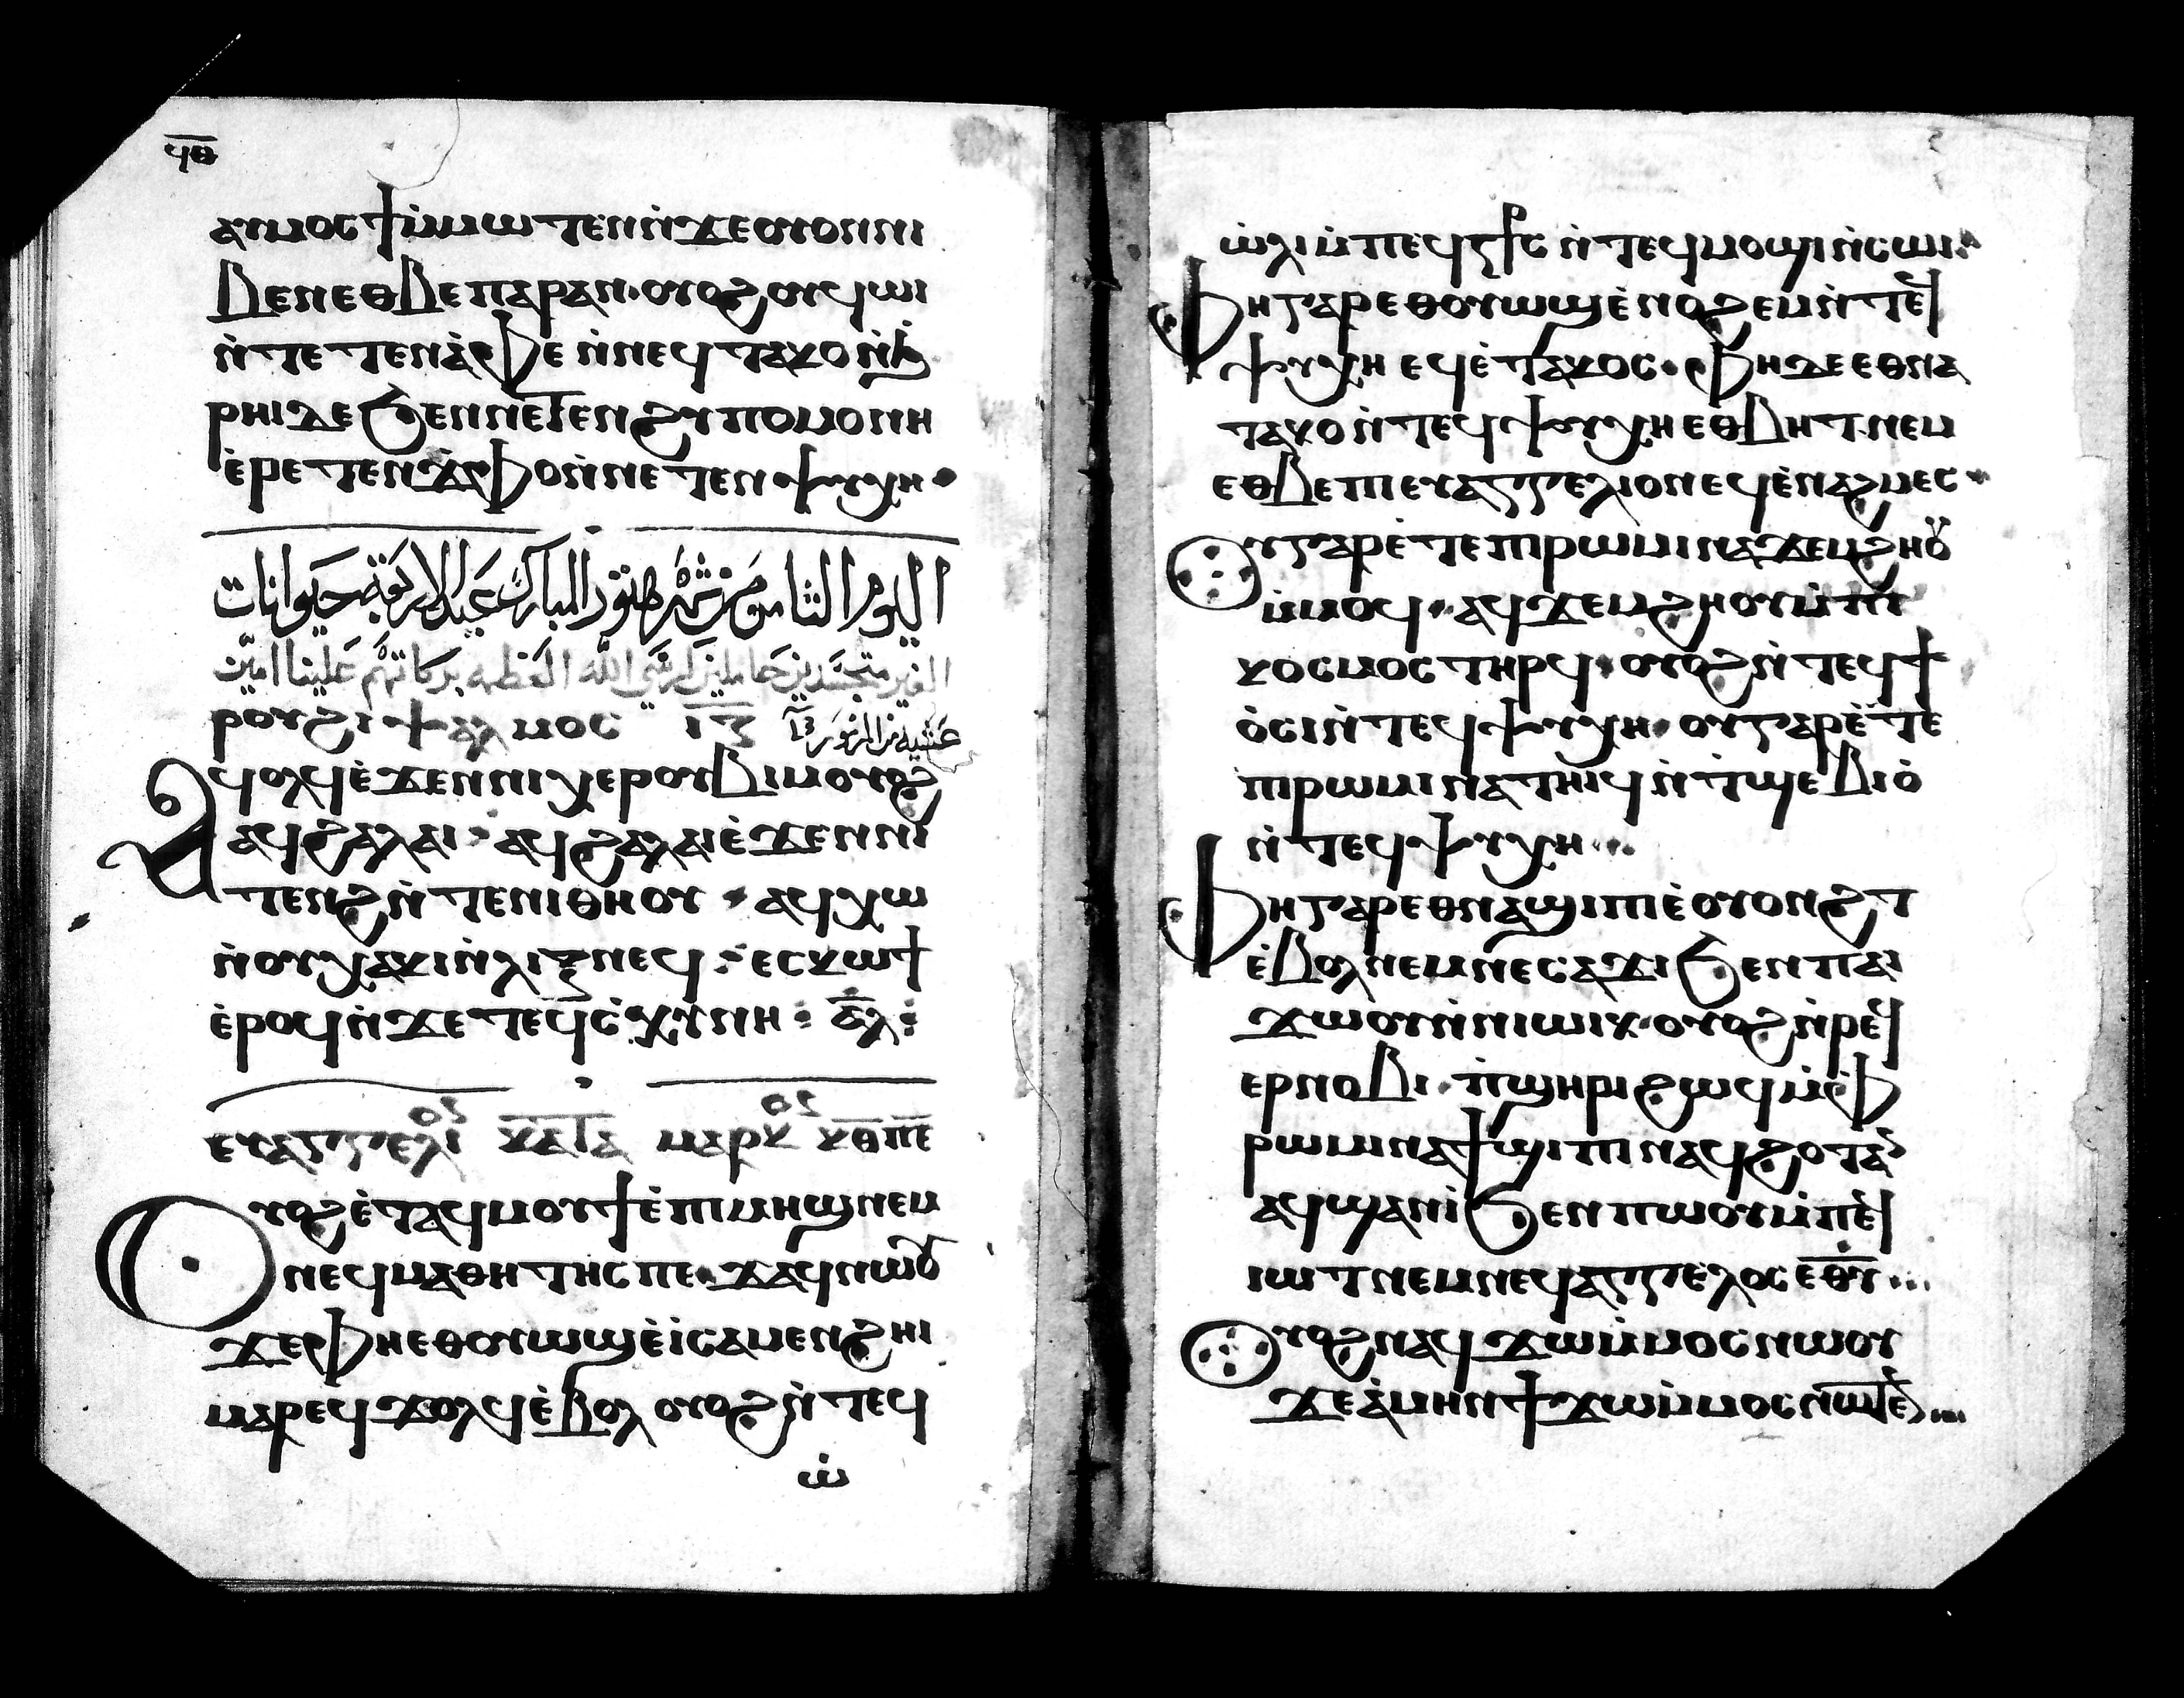 ϥⲑ
ⲁⲩⲙⲟⲥϯⲙ̇ⲙⲱⲧⲉⲛⲛ̇ϫⲉⲟⲩⲟⲛⲛⲓ
ⲃⲉⲛⲉⲑⲃⲉⲡⲁⲣⲁⲛ·ⲟⲩⲟϩⲟⲩϥⲱⲓ
ⲛ̇ⲧⲉⲧⲉⲛⲁ̇ⲫⲉⲛ̇ⲛⲉϥⲧⲁⲕⲟⲛ̇ϧ
ⲣⲏⲓⲇⲉϧⲉⲛⲛⲉⲧⲉⲛϩⲩⲡⲟⲙⲟⲛⲏ
ⲉ̇ⲣⲉⲧⲉⲛϫ̇ⲫⲟⲛ̇ⲛⲉⲧⲉⲛⲯⲩⲭⲏ·
اليوم الثامن من شهر هتور المبارك عيد الاربعة حيوانات
الغير متجسدين حاملين كرسي الله العظمه بركاتهم علينا امين
ⲣⲟⲩϩⲓⲯⲁⲗⲙⲟⲥ ⲓ̅ⲍ̅ عشية من المزمور ١٧
Ⲁϥⲟⲗϥⲉ̇ϫⲉⲛⲛⲓⲭⲉⲣⲟⲩⲃⲓⲙⲟⲩⲟϩ
ⲁϥϩⲁⲗⲁⲓ· ⲁϥϩⲁⲗⲁⲓⲉ̇ϫⲉⲛⲛⲓ
ⲧⲉⲛϩⲛ̇ⲧⲉⲛⲓⲑⲏⲟⲩ · ⲁϥⲭⲱ
ⲛ̇ⲟⲩⲭⲁⲕⲓⲛ̇ⲗⲓⲯⲛⲉϥ· ⲉⲥⲕⲱϯ
ⲉ̇ⲣⲟϥⲛ̇ϫⲉⲧⲉϥⲥ̇ⲕⲩⲛⲏ : ⲁ̅ⲗ̅ :
ⲉⲩⲁⲅⲅⲉⲗⲓⲟⲛ ⲕⲁⲧⲁ ⲙⲁⲣⲕⲟⲥ ⲕ̅ⲑ̅ⲡ̅ⲉ̅
Ⲟⲩⲟϩⲉ̇ⲧⲁϥⲙⲟⲩϯⲉ̇ⲡⲓⲙⲏϣⲛⲉⲙ
ⲛⲉϥⲙⲁⲑⲏⲧⲏⲥⲡⲉ·ϫⲁϥⲛⲱⲟⲩ
ϫⲉⲫⲏⲉⲑⲟⲩⲱϣⲉ̇ⲓ̇ⲥⲁⲙⲉⲛϩⲏⲓ
ⲙⲁⲣⲉϥϫⲟⲗϥⲉ̇ⲃⲟⲗ ⲟⲩⲟϩⲛ̇ⲧⲉϥ
ⲱ̇
ⲱ̇ⲗⲓⲙ̇ⲡⲉϥⳁⲥ ⲛ̇ⲧⲉϥⲙⲟϣⲓⲛ̇ⲥⲱⲓ·
Ⲫⲏⲅⲁⲣⲉⲑⲟⲩⲱϣⲉ̇ⲛⲟϩⲉⲙⲛ̇ⲧⲉϥ
ⲯⲩⲭⲏ ⲉϥⲉ̇ⲧⲁⲕⲟⲥ·ⲫⲏⲇⲉⲉⲑⲛⲁ
ⲧⲁⲕⲟⲛ̇ⲧⲉϥⲯⲩⲭⲏⲉⲑⲃⲏⲧ·ⲛⲉⲙ
ⲉⲑⲃⲉⲡⲓⲉⲩⲁⲅⲅⲉⲗⲓⲟⲛⲉϥⲉ̇ⲛⲁϩⲙⲉⲥ·
Ⲟⲩⲅⲁⲣⲉ̇ⲧⲉⲡⲓⲣⲱⲙⲓⲛⲁϫⲉⲙϩⲏⲟⲩ
ⲙ̇ⲙⲟϥ· ⲁϥϫⲉⲙϩⲏⲟⲩⲙ̇ⲡⲓ
ⲕⲟⲥⲙⲟⲥⲧⲏⲣϥ·ⲟⲩⲟϩⲛ̇ⲧⲉϥϯ
ⲟ̇ⲥⲓⲛ̇ⲧⲉϥⲯⲩⲭⲏ·ⲟⲩⲅⲁⲣⲉ̇ⲧⲉ
ⲡⲓⲣⲱⲙⲓⲛⲁⲧⲏⲓϥⲛ̇ⲧ̇ϣⲉⲃⲓⲟ̇
ⲛ̇ⲧⲉϥⲯⲩⲭⲏ·
Ⲫⲏⲅⲁⲣⲉⲑⲛⲁϣⲓⲡⲓⲉ̇ⲟⲩⲟⲛϩⲧ
ⲉ̇ⲃⲟⲗⲛⲉⲙⲛⲉⲥⲁϫⲓϧⲉⲛⲡⲁⲓ
ϫⲱⲟⲩⲛ̇ⲛⲱⲓⲕ·ⲟⲩⲟϩⲛ̇ⲣⲉϥ
ⲉⲣⲛⲟⲃⲓ·ⲡ̇ϣⲏⲣⲓϩⲱϥⲙ̇ⲫ
ⲣⲱⲙⲓⲛⲁϯϣⲓⲡⲓⲛⲁϥϩⲟⲧⲁⲛ
ⲁϥϣⲁⲛⲓ̇ϧⲉⲛⲡⲱⲟⲩⲙ̇ⲡⲉϥ
ⲓⲱⲧⲛⲉⲙⲛⲉϥⲁⲅⲅⲉⲗⲟⲥⲉ̅ⲑ̅ⲩ̅···
Ⲟⲩⲟϩⲛⲁϥϫⲱⲙ̇ⲙⲟⲥⲛⲱⲟⲩ
ϫⲉⲁ̇ⲙⲏⲛϯϫⲱⲙ̇ⲙⲟⲥⲛⲱⲧⲉⲛ···